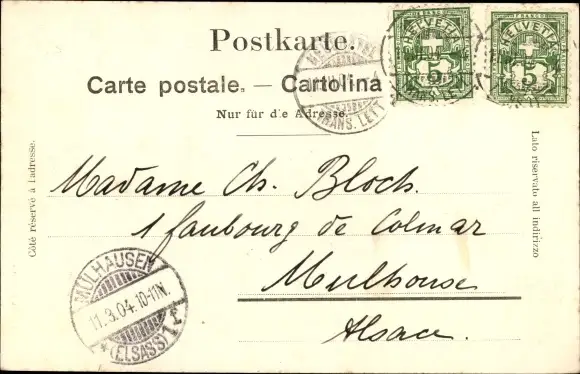 Postkarte.
Carte postale. — Cartolina
Nur für die Adresse.
HELVETIA
5
HELVETIA
5
TRANS. LETT.
Côté réservé à l'adresse.
Lato riservato all indirizzo
Madame Ch. Bloch.
1 faubourg de Colmar
Mulhouse
Alsace.
MÜLHAUSEN
11.3.04.10-11N.
* (ELSASS) 1 f